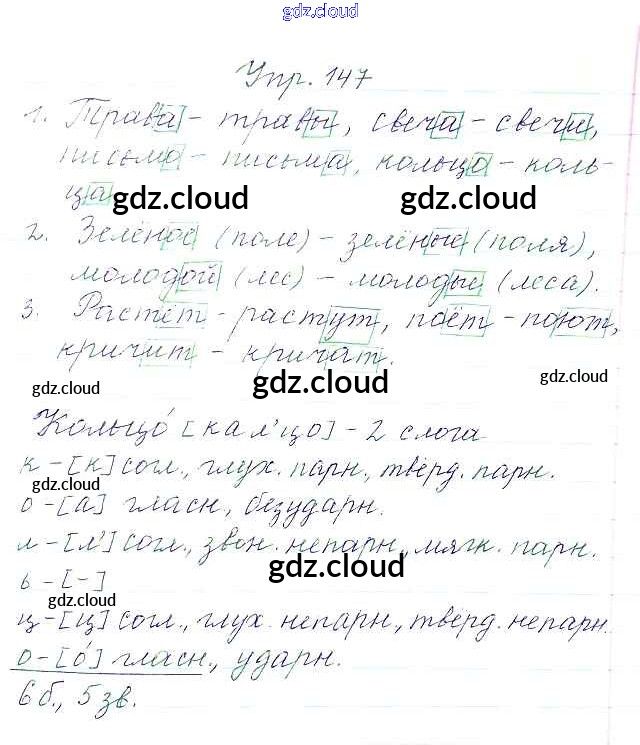 gdz.cloud
Упр. 147
1. Трава - травы, свеча - свечи,
письмо - письма, кольцо - коль-
ца gdz.cloud gdz.cloud
2. Зелёное (поле) - зелёные (поля),
молодой (лес) - молодые (леса).
3. Растёт - растут, поёт - поют,
кричит - кричат.
gdz.cloud gdz.cloud gdz.cloud
Кольцо́ [кал'цо] - 2 слога
к - [к] согл., глух. парн., твёрд. парн.
gdz.cloud
о - [а] гласн, безударн.
л - [л'] согл., звон. непарн., мягк. парн.
ь - [-] gdz.cloud
gdz.cloud
ц - [ц] согл., глух. непарн., твёрд. непарн.
о - [о́] гласн., ударн.
6 б., 5 зв.